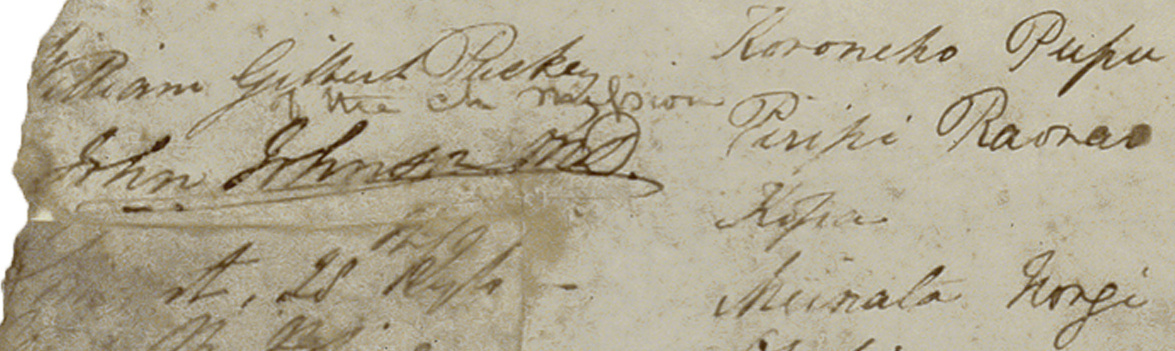 William Gilbert Puckey
of the Ch Mission
John Johnson MD.
28th Regt
Koroneho Pupu
Piripi Raorao
Kopa
Meinata Hongi